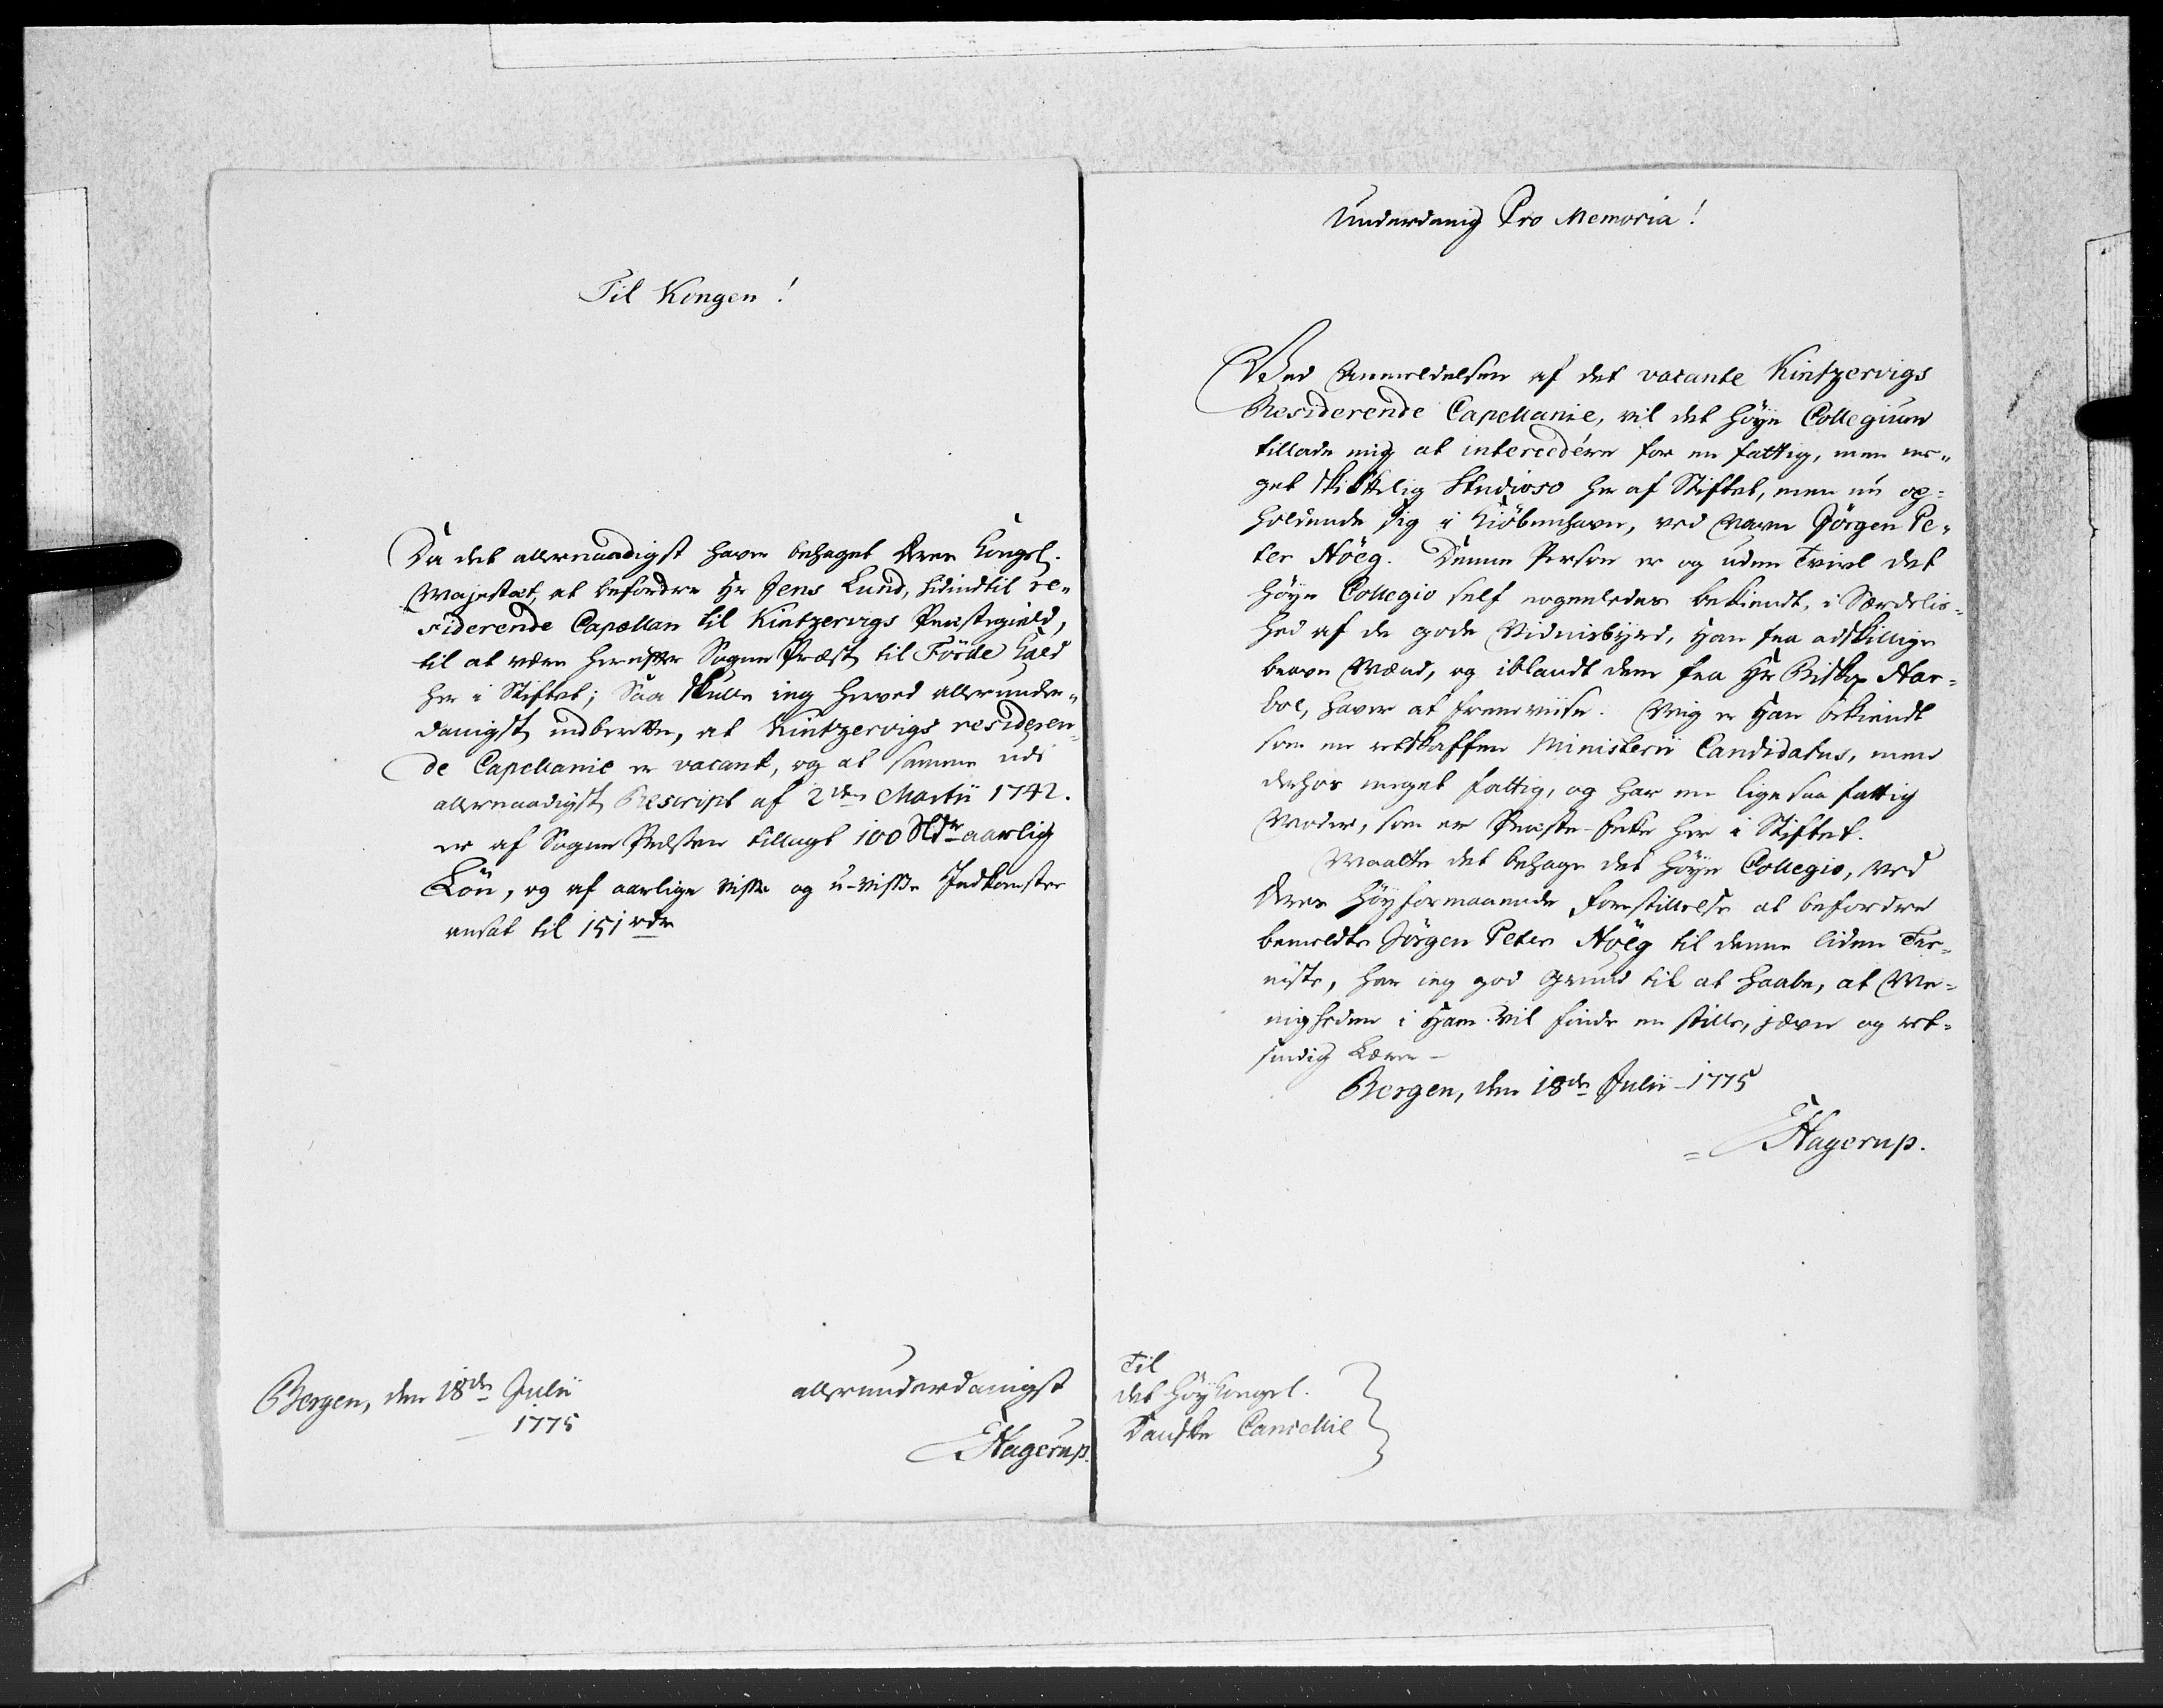 Til Kongen!
Da det allernaadigst haver behaget Deres Kongel.
Majestæt, at befordre Hr Jens Lund, hidindtil re¬
siderende Capellan til Kintzervigs Præstegield,
til at være herefter Sogne Præst til Förde Kald
her i Stiftet; Saa skulle jeg herved allerunder¬
danigst indberette, at Kintzervigs resideren¬
de Capellanie er vacant, og at samme udi
allernaadigst Rescript af 2den Martii 1742.
er af Sogne Præsten tillagt 100 Rdr aarlig
Lön, og af aarlige visse og u-visse Indkomster
ansat til 151 rdr
Bergen, den 18de Julii
1775
allerunderdanigst
EHagerup.
Underdanig Pro Memoria!
Ved Anmeldelsen af det vacante Kintzervigs
Residerende Capellanie, vil det høye Collegium
tillade mig at intercedére for en fattig, men me¬
get skikkelig Studioso her af Stiftet, men nu op¬
holdende sig i Kiöbenhavn, ved Navn Jörgen Pe¬
ter Höeg. Denne Person er og uden Tvivl det
høye Collegio self nogenledes bekiendt, i Særdelis¬
hed af de gode Vidnisbyrd, Han fra adskillige
brave Mænd, og iblandt dem fra Hr Biskop Har¬
boe, haver at fremviise. Mig er Han bekiendt
som en retskaffen Ministerii Candidatus, men
derhos meget fattig, og har en lige saa fattig
Moder, som er Præste-Enke her i Stiftet.
Maatte det behage det høye Collegio, ved
Deres høyformaaende Forestillelse at befordre
bemeldte Jörgen Peter Höeg til denne liden Tie¬
niste, har jeg god Grund til at haabe, at Me¬
nigheden i Ham vil finde en stille, jævn og ret¬
sindig Lærer –
Bergen, den 18de Julii – 1775
EHagerup.
Til
det høy Kongel.
Danske Cancellie